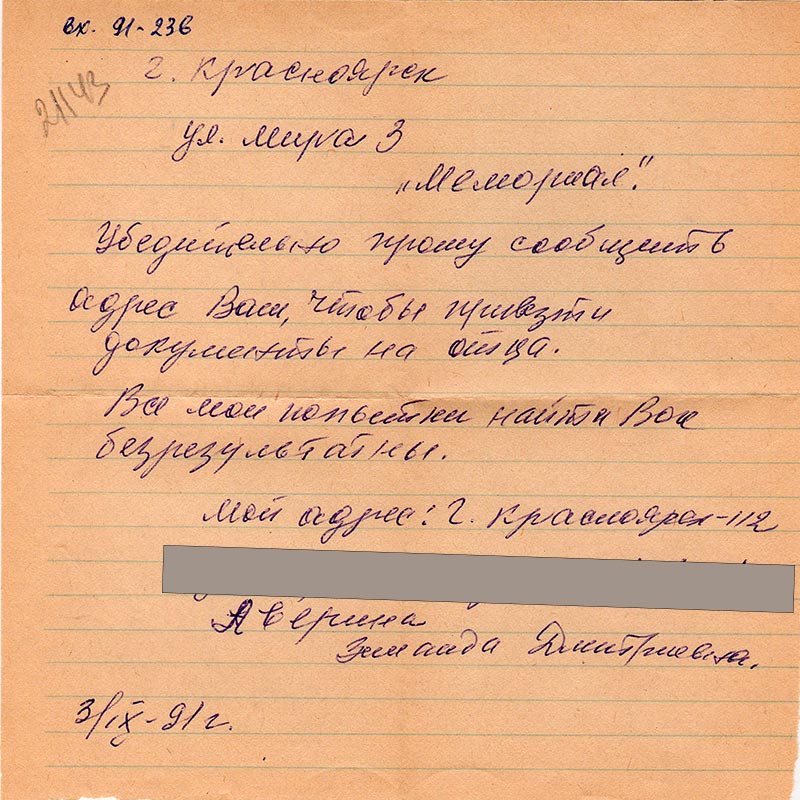 вх. 91-236
21143
г. Красноярск
ул. Мира 3
„Мемориал".
Убедительно прошу сообщить
адрес Ваш, чтобы привезти
документы на отца.
Все мои попытки найти Вас
безрезультатны.
Мой адрес: г. Красноярск-112
Аверина
Зинаида Дмитриевна.
3/IX-91г.